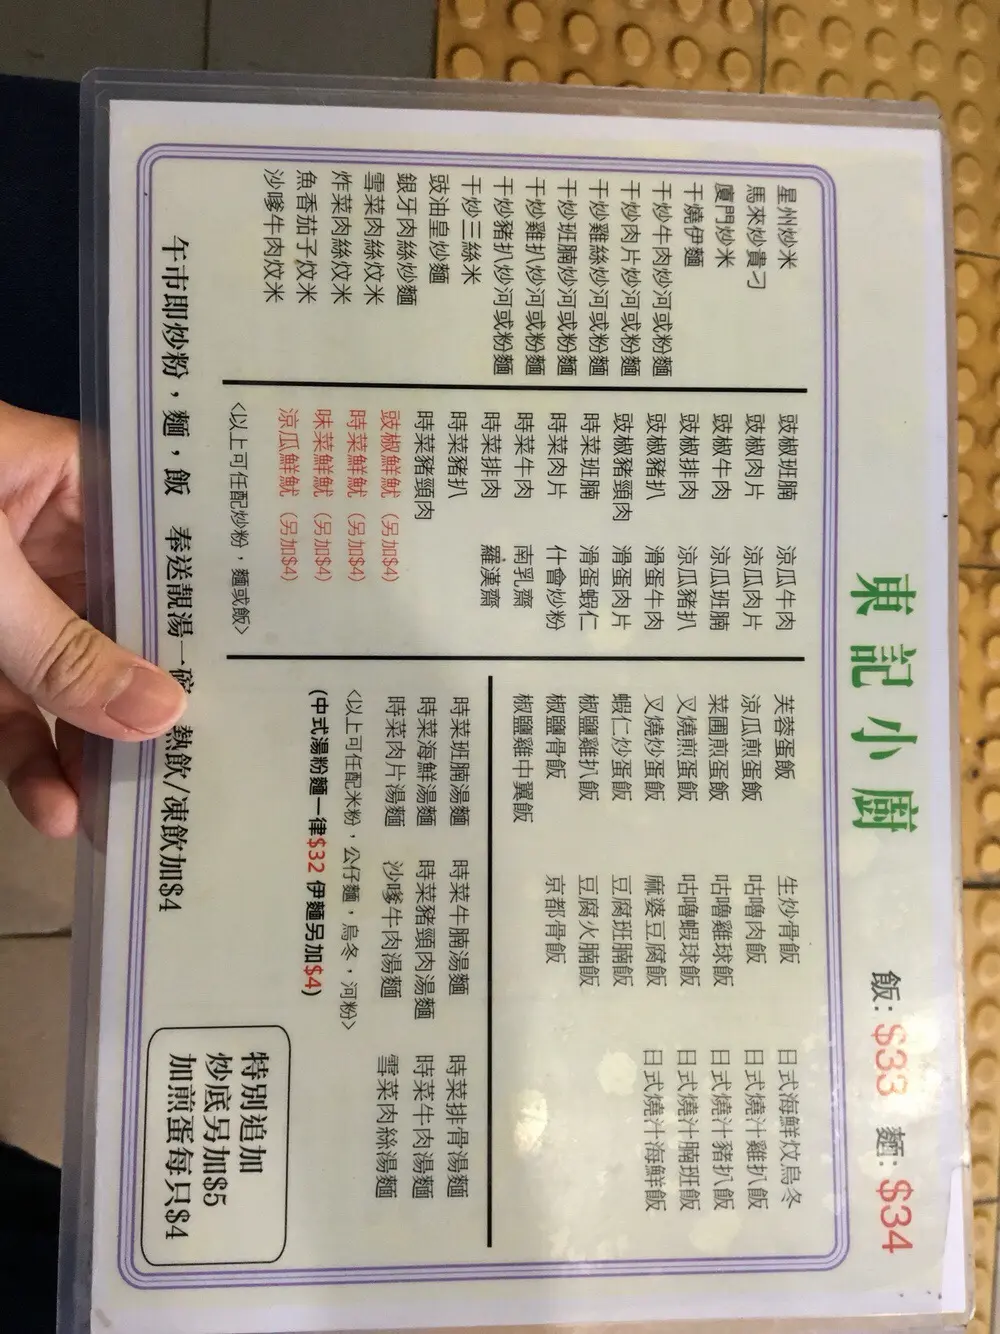 東記小廚 飯: $33 麵: $34
星州炒米
馬來炒貴刁
廈門炒米
干燒伊麵
干炒牛肉炒河或粉麵
干炒肉片炒河或粉麵
干炒雞絲炒河或粉麵
干炒班腩炒河或粉麵
干炒雞扒炒河或粉麵
干炒豬扒炒河或粉麵
干炒三絲米
豉油皇炒麵
銀牙肉絲炒麵
雪菜肉絲炆米
炸菜肉絲炆米
魚香茄子炆米
沙嗲牛肉炆米
豉椒班腩 涼瓜牛肉
豉椒肉片 涼瓜肉片
豉椒牛肉 涼瓜班腩
豉椒排肉 涼瓜豬扒
豉椒豬扒 滑蛋牛肉
豉椒豬頸肉 滑蛋肉片
時菜班腩 滑蛋蝦仁
時菜肉片 什會炒粉
時菜牛肉 南乳齋
時菜排肉 羅漢齋
時菜豬扒
時菜豬頸肉
豉椒鮮魷（另加$4）
時菜鮮魷（另加$4）
味菜鮮魷（另加$4）
涼瓜鮮魷（另加$4）
<以上可任配炒粉，麵或飯>
芙蓉蛋飯 生炒骨飯 日式海鮮炆烏冬
涼瓜煎蛋飯 咕嚕肉飯 日式燒汁雞扒飯
菜圃煎蛋飯 咕嚕雞球飯 日式燒汁豬扒飯
叉燒煎蛋飯 咕嚕蝦球飯 日式燒汁腩班飯
叉燒炒蛋飯 麻婆豆腐飯 日式燒汁海鮮飯
蝦仁炒蛋飯 豆腐班腩飯
椒鹽雞扒飯 豆腐火腩飯
椒鹽骨飯 京都骨飯
椒鹽雞中翼飯
時菜班腩湯麵 時菜牛腩湯麵 時菜排骨湯麵
時菜海鮮湯麵 時菜豬頸肉湯麵 時菜牛肉湯麵
時菜肉片湯麵 沙嗲牛肉湯麵 雪菜肉絲湯麵
<以上可任配米粉，公仔麵，烏冬，河粉>
(中式湯粉麵一律$32 伊麵另加$4)
特別追加
炒底另加$5
加煎蛋每只$4
午市即炒粉，麵，飯 奉送靚湯一碗 熱飲/凍飲加$4